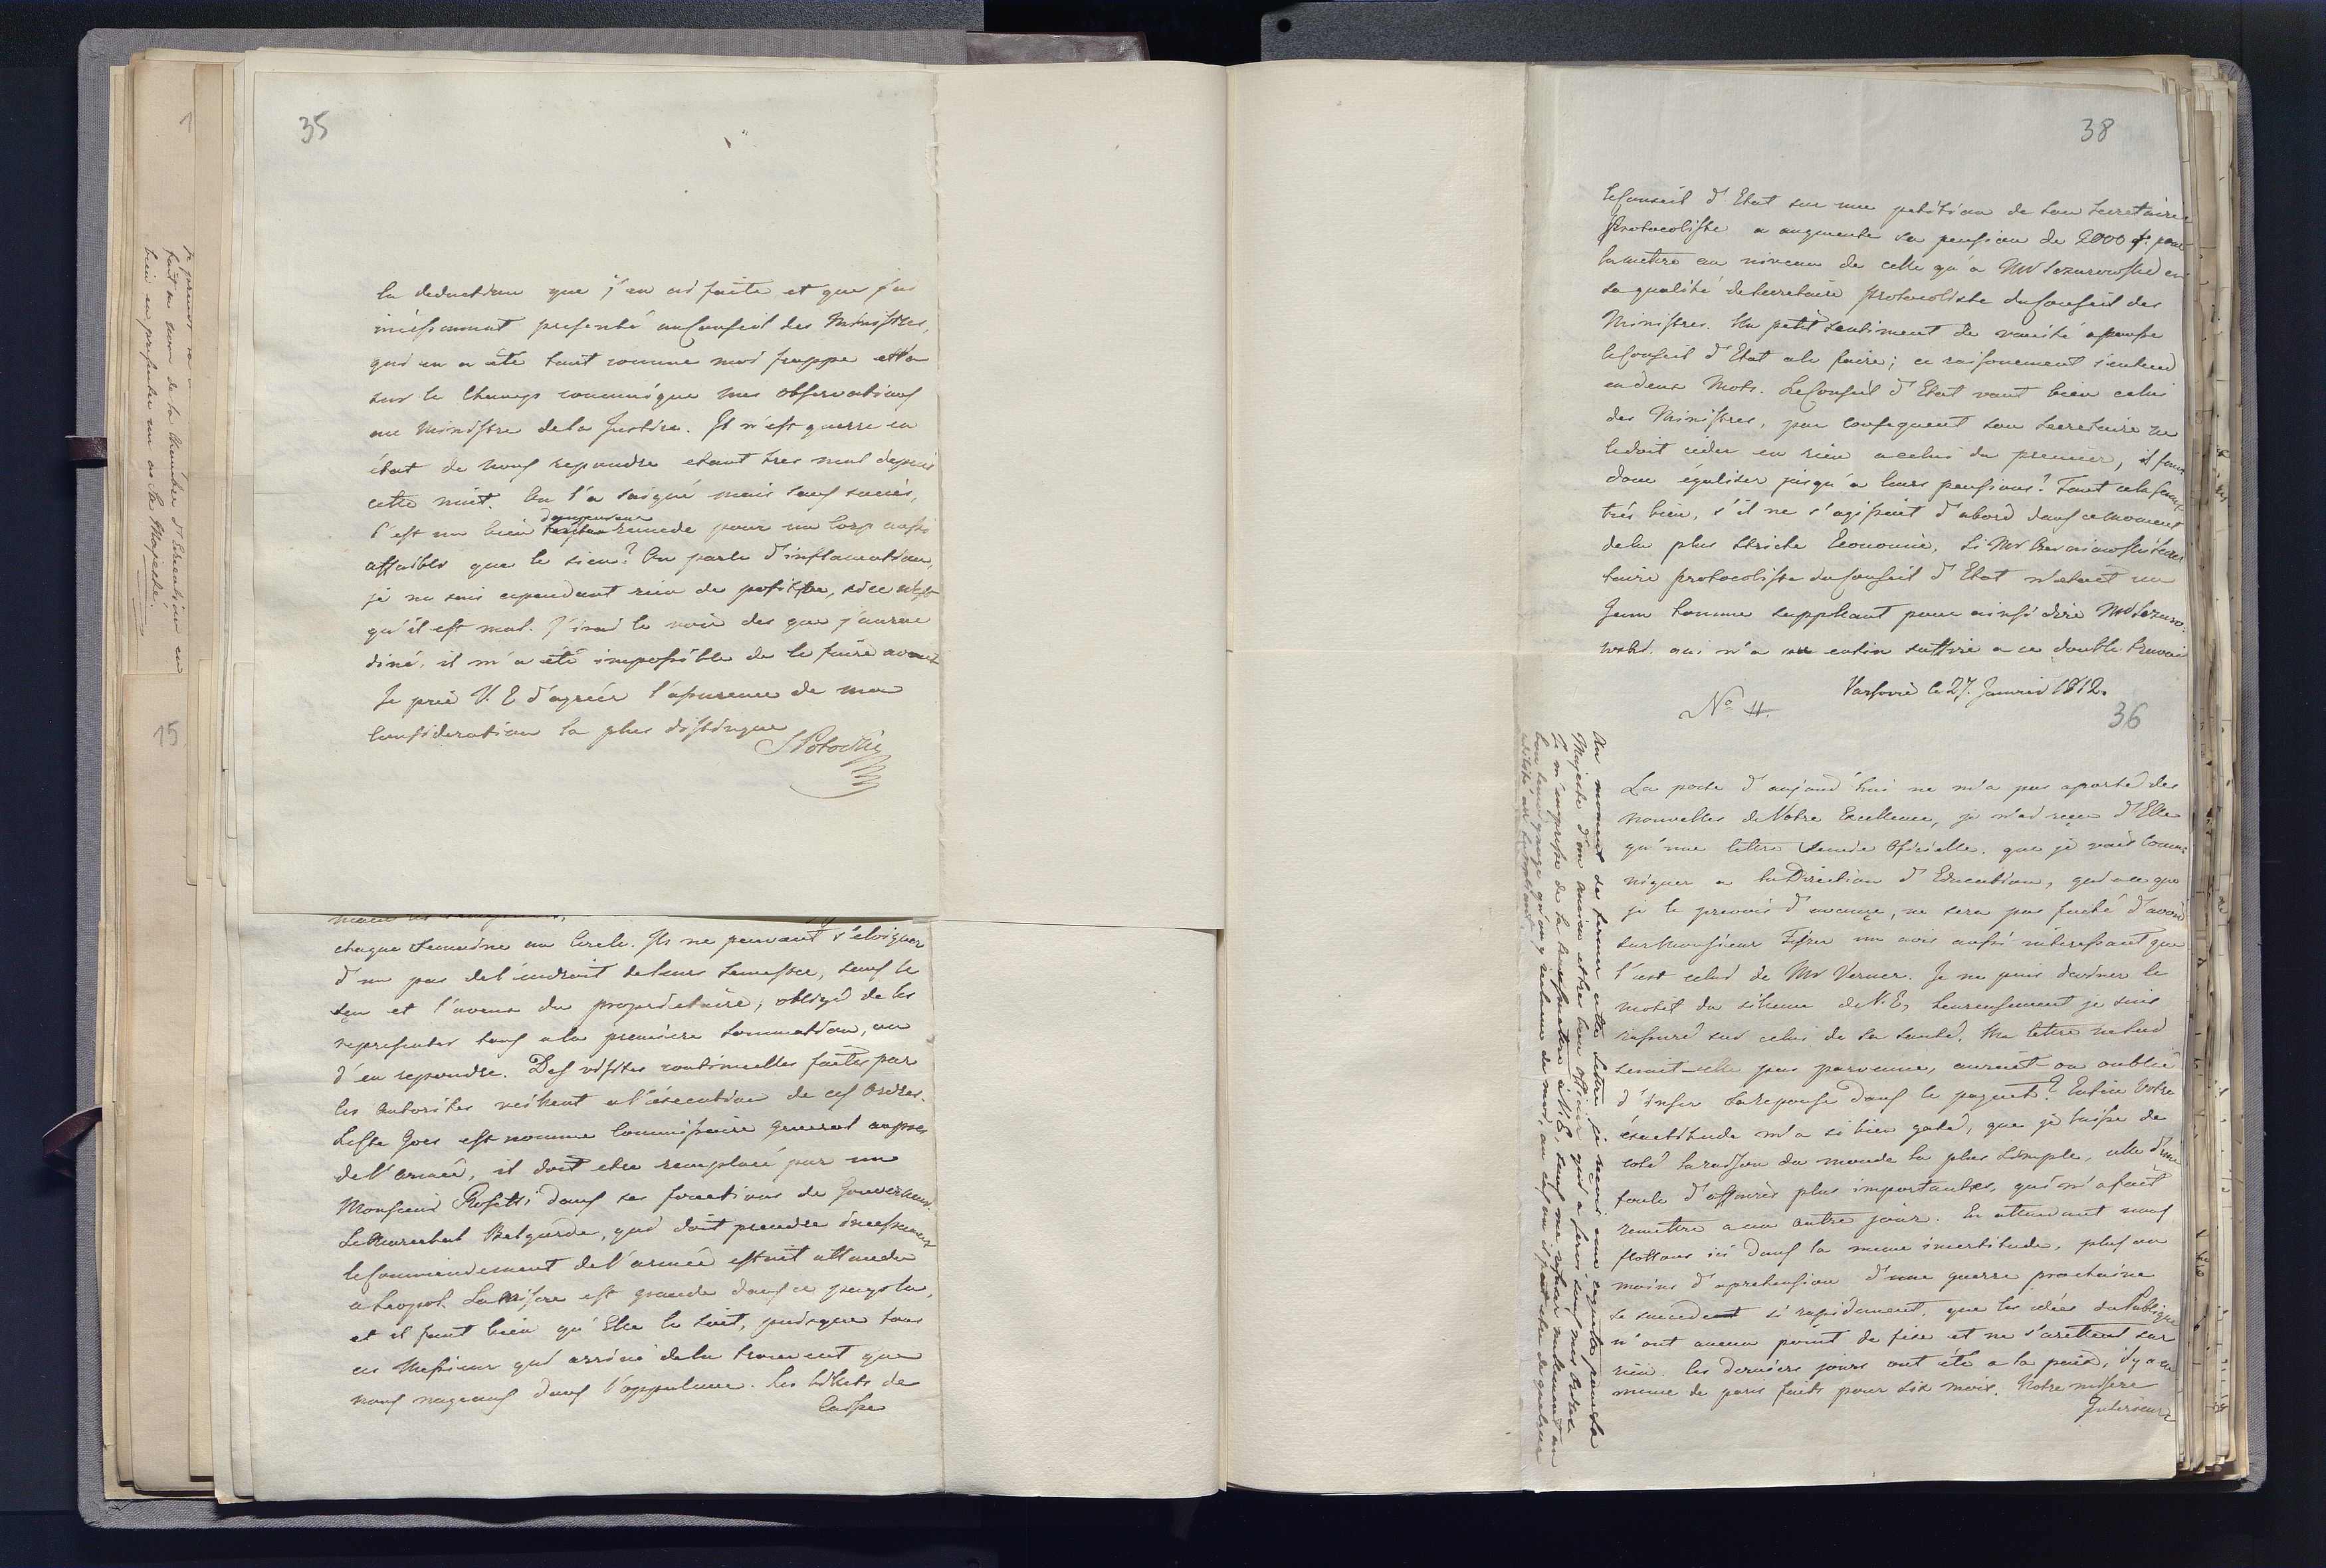 35
la deduction que j'en ai faite et que j'ai
incessament presenté au Conseil des Ministres,
qui en a été tout comme moi frappe et l'a
sur le champ communiqué mes observations
au Ministre de la Justice. Il n'est guerre en
état de nous repondre etant tres mal depuis
cette nuit. On l'a saigné mais sans succès,
C'est un bien dangereux remede pour un Corp aussi
affaibli que le sien? On parle d'inflamation,
je ne sais cependant rien de positive, si ce n'est
qu'il est mal. J'irai le voir des que j'aurai
diné, il m'a été impossible de le faire avant
Je prie V. E d'agréer l'assurence de ma
Consideration la plus distingue
SPotocki
chaque Semaine au Cercle. Ils ne peuvent s'eloigner
d'un pas de l'endroit de leurs Semestre, sans le
sçu et l'aveux du proprietaire, obligé de les
representer tous a la première Sommation, ou
d'en repondre. Des visites continuelles faites par
les Autorités veillent a l'éxecution de ces Ordres.
Le Cte Goes est nomme Commissaire General aupres
de l'armée, il doit etre remplacé par un
Monsieur Rosetti dans ses fonctions de Gouverneur.
Le Marechal Belgarde, qui doit prendre incessament
le Commendement de l'armée estoit attendu
a Leopol. La Misere est grande dans ce pays la,
et il faut bien qu'Elle le soit, puisque tous
ces Messieurs qui arrive de la trouvent que
nous nageons dans l'oppulence. Les billets de
Caisse
Je prends sa
fait au nom de la Chambre d'Education en
bien en presenter un as Sa Majesté.
1
15
38
le Conseil d'Etat sur une petition de son Secretaire
Protocoliste a augmente sa pension de 2000 f. pour
la mettre au niveau de celle qu'a Mr Lozurowski en
sa qualité de Secretaire protocoliste du Conseil des
Ministres. Un petit Sentiment de vanité a pousse
le Conseil d'Etat a le faire; ce raisonement s'entend
en deux Mots. Le Conseil d'Etat vaut bien celui
des Ministres, par consequent son Secretaire ne
le doit ceder en rien a celui du premier, il faut
donc égaliser jusqu'a leurs pensions? Tout cela seroit
très bien, s'il ne s'agissoit d'abord dans ce moment
de la plus stricte Economie, si Mr
taire protocoliste du Conseil d'Etat n'etoit un
Jeun homme suppleant pour ainsi dire Mr Lozuro-
wski. qui n'a pu enfin suffire a ce double travail
Varsovie le 27. Janvier 1812.
No 11.
36
La poste d'aujourd'hui ne m'a pas aporté des
nouvelles de Votre Excellence, je n'ai reçu d'Elle
qu'une lettre Oficielle. que je vais Comu-
niquer a la Direction d'Education, qui a ce que
je le prevois d'avance, ne sera pas faché d'avoir
sur Monsieur un avis aussi interessant que
l'est celui de Mr Verner. Je ne puis deviner le
motif du silence de V. E, heureusement je suis
rassuré sur celui de sa santé. Ma lettre ne lui
seroit-elle pas parvenue, auroit-on oublié
d'insérer la reponse dans le paquet? Enfin Votre
éxactitude m'a si bien gaté, que je laisse de
coté la raison du monde la plus simple, celle d'une
foule d'affaires plus importantes, qui m'a fait
remettre a un autre jour. En attendant nous
flottons ici dans la meme incertitude, plus ou
moins d'aprehension d'une guerre prochaine
se succedent si rapidement, que les idées du Publique
n'ont aucun point de fixe et ne s'arettent sur
rien. les derniers jours ont été a la paix, il y a eu
meme de paris faits pour six mois. Notre misere
Interieure
Au moment de fermer cette lettre je reçois une requette pour Sa
Majesté d'un ancien et tres bon officier qui a servi sous mes Ordres
Je m'empresse de la transmettre à V. E, sans me refuser nullement au
bon temoignage qu'on y reclame de moi, au cas ou il peut etre de quelque
utilité au suppliant.